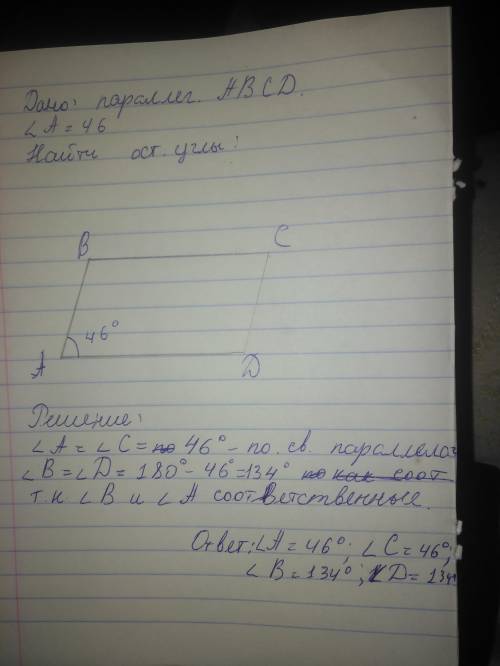 Дано: параллег. ABCD.
∠A = 46
Найти ост. углы:
B C
46°
A D
Решение:
∠A = ∠C = по 46° - по. св. параллелог
∠B = ∠D = 180° - 46° = 134° по как соот
т.к ∠B и ∠A соответственные.
Ответ: ∠A = 46°; ∠C = 46°;
∠B = 134°; ∠D = 134°